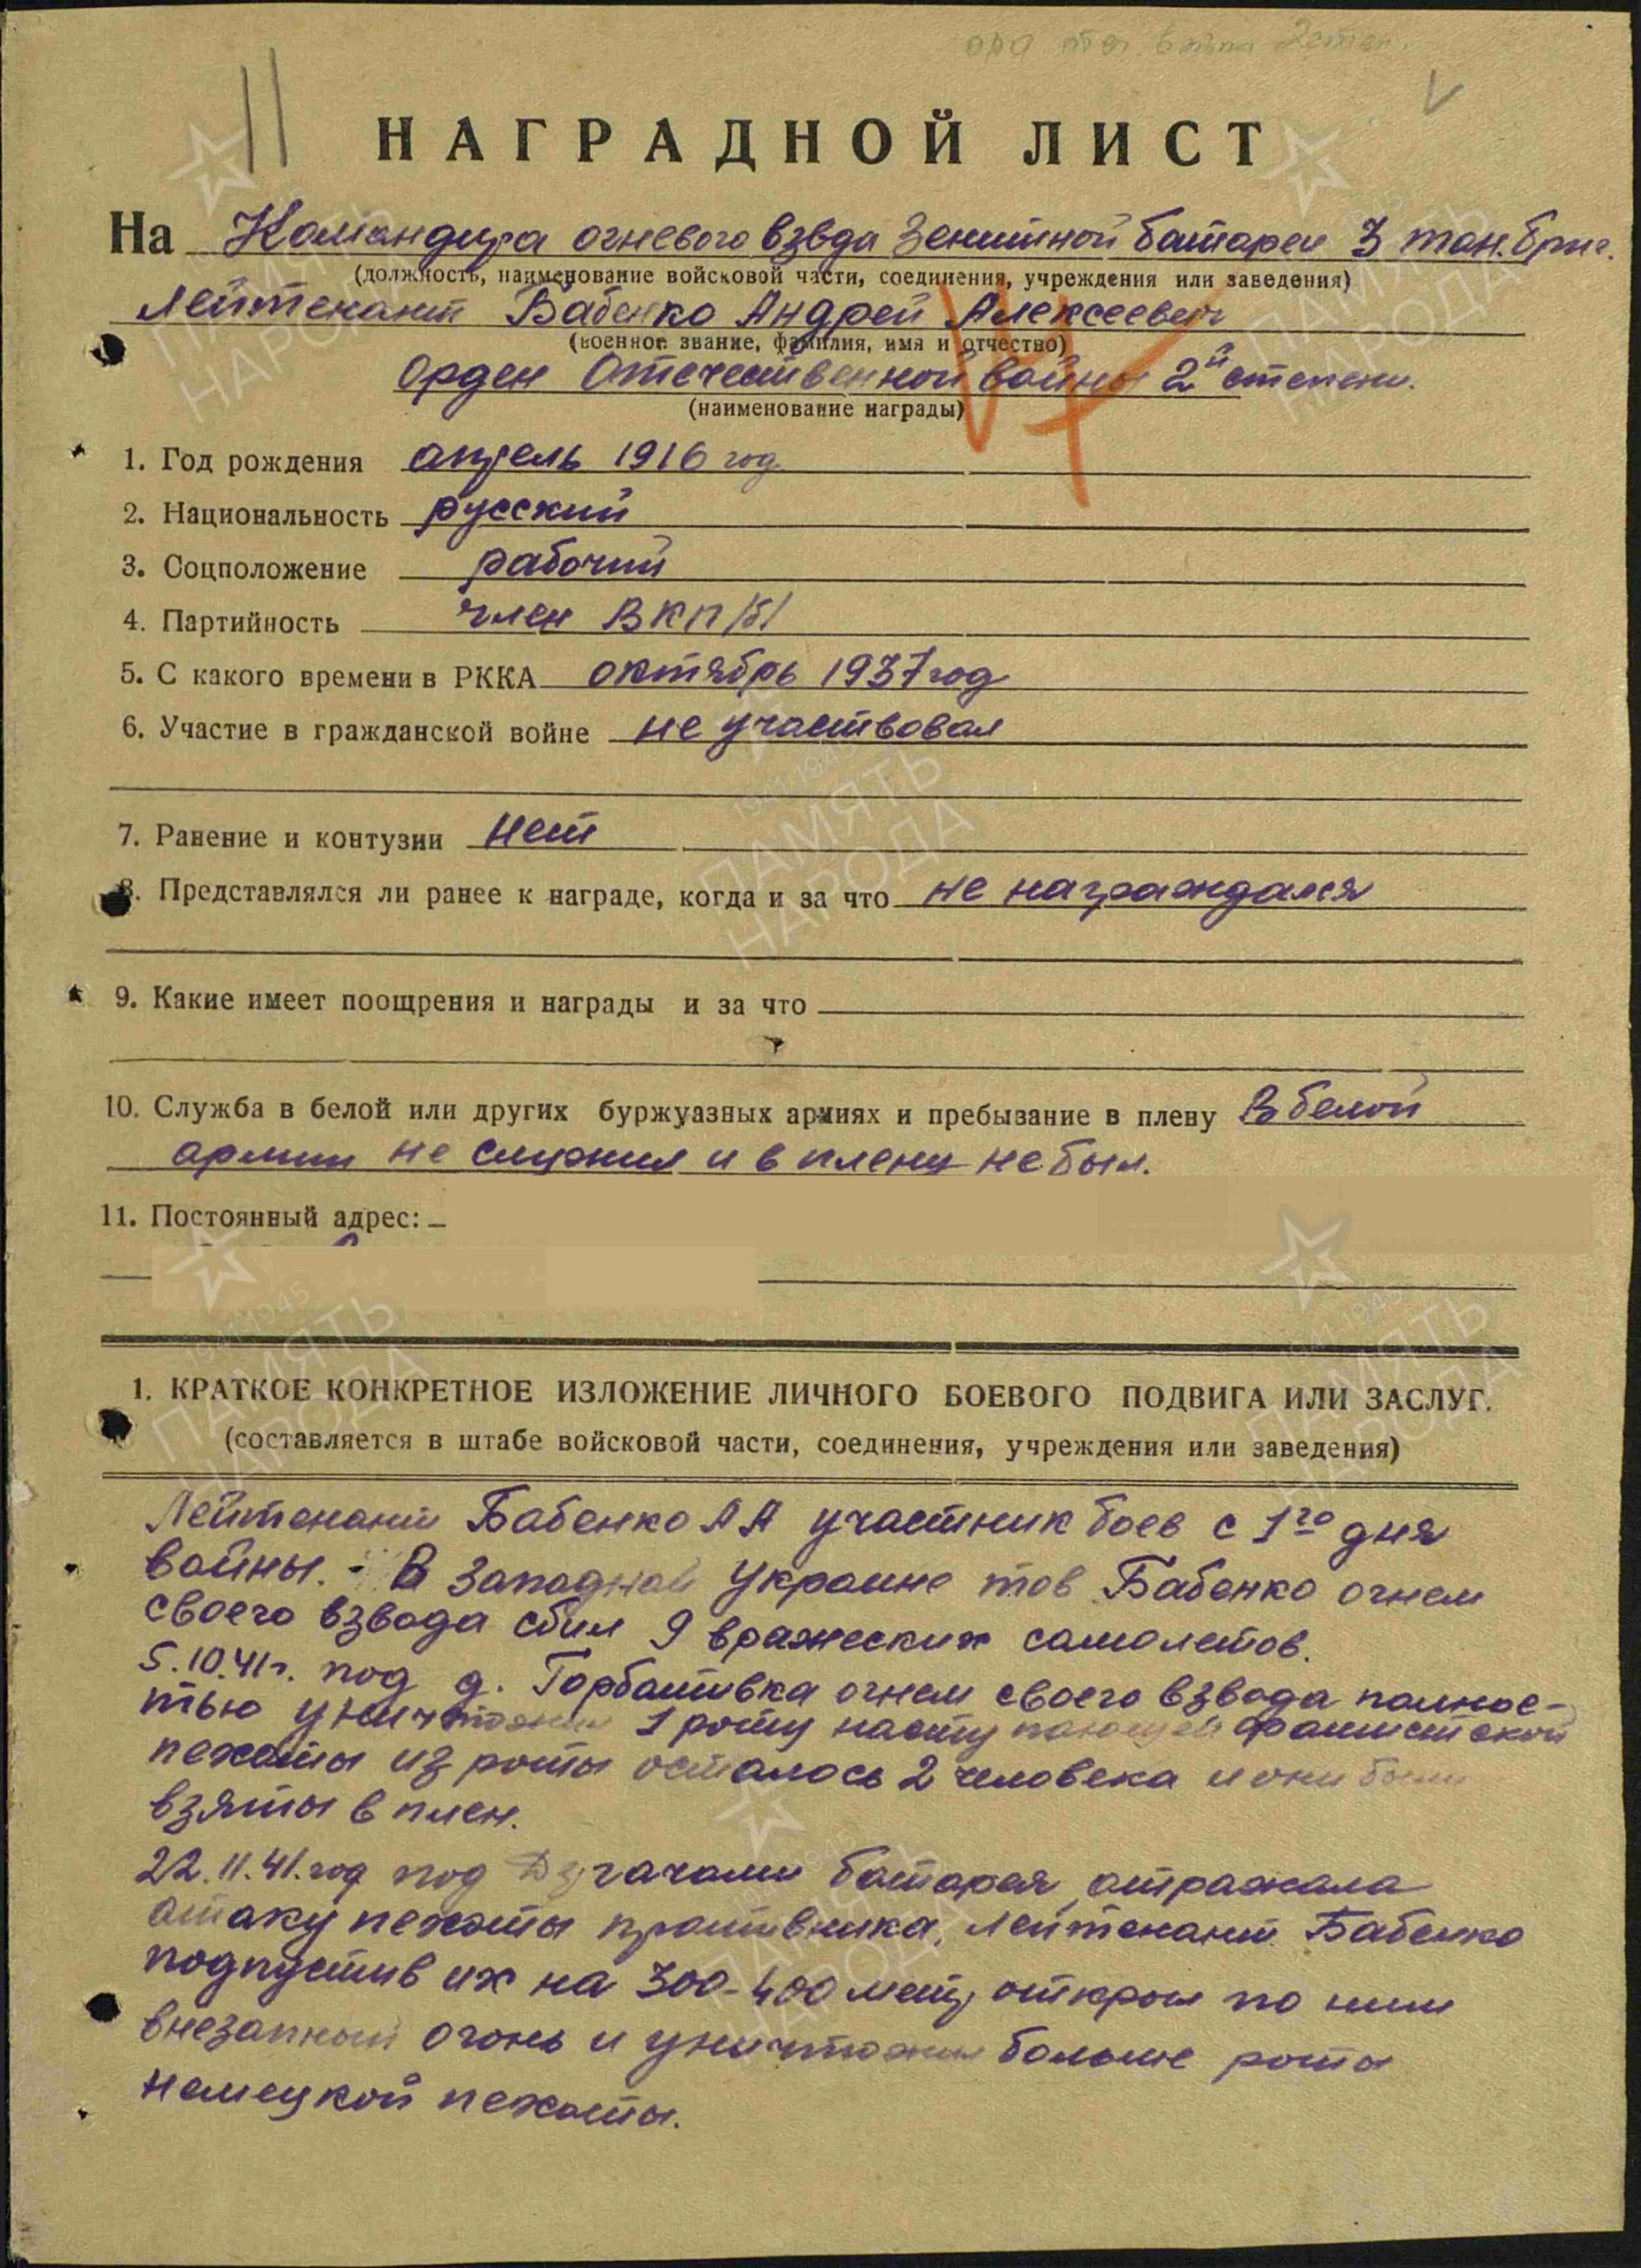 орд. от. войны 2 степ.
НАГРАДНОЙ ЛИСТ
На Командира огневого взвода Зенитной батареи 3 тан. бриг.
(должность, наименование войсковой части, соединения, учреждения или заведения)
Лейтенант Бабенко Андрей Алексеевич
(военное звание, фамилия, имя и отчество)
Орден Отечественной войны 2й степени.
(наименование награды)
1. Год рождения апрель 1916 год
2. Национальность русский
3. Соцположение рабочий
4. Партийность член ВКП/б/
5. С какого времени в РККА октябрь 1937 год
6. Участие в гражданской войне не участвовал
7. Ранение и контузии нет
8. Представлялся ли ранее к награде, когда и за что не награждался
9. Какие имеет поощрения и награды и за что
10. Служба в белой или других буржуазных армиях и пребывание в плену В белой
армии не служил и в плену не был.
11. Постоянный адрес:
1. КРАТКОЕ КОНКРЕТНОЕ ИЗЛОЖЕНИЕ ЛИЧНОГО БОЕВОГО ПОДВИГА ИЛИ ЗАСЛУГ.
(составляется в штабе войсковой части, соединения, учреждения или заведения)
Лейтенант Бабенко А А участник боев с 1го дня
войны. - В Западной Украине тов Бабенко огнем
своего взвода сбил 9 вражеских самолетов.
5.10.41г. под д. Горбативка огнем своего взвода полнос-
тью уничтожил 1 роту наступающей фашистской
пехоты из роты осталось 2 человека и они были
взяты в плен.
22.11.41.год под батарея отражала
атаку пехоты противника, лейтенант Бабенко
подпустив их на 300-400 метр открыл по ним
внезапный огонь и уничтожил больше роты
немецкой пехоты.
ПАМЯТЬ НАРОДА
1941-1945